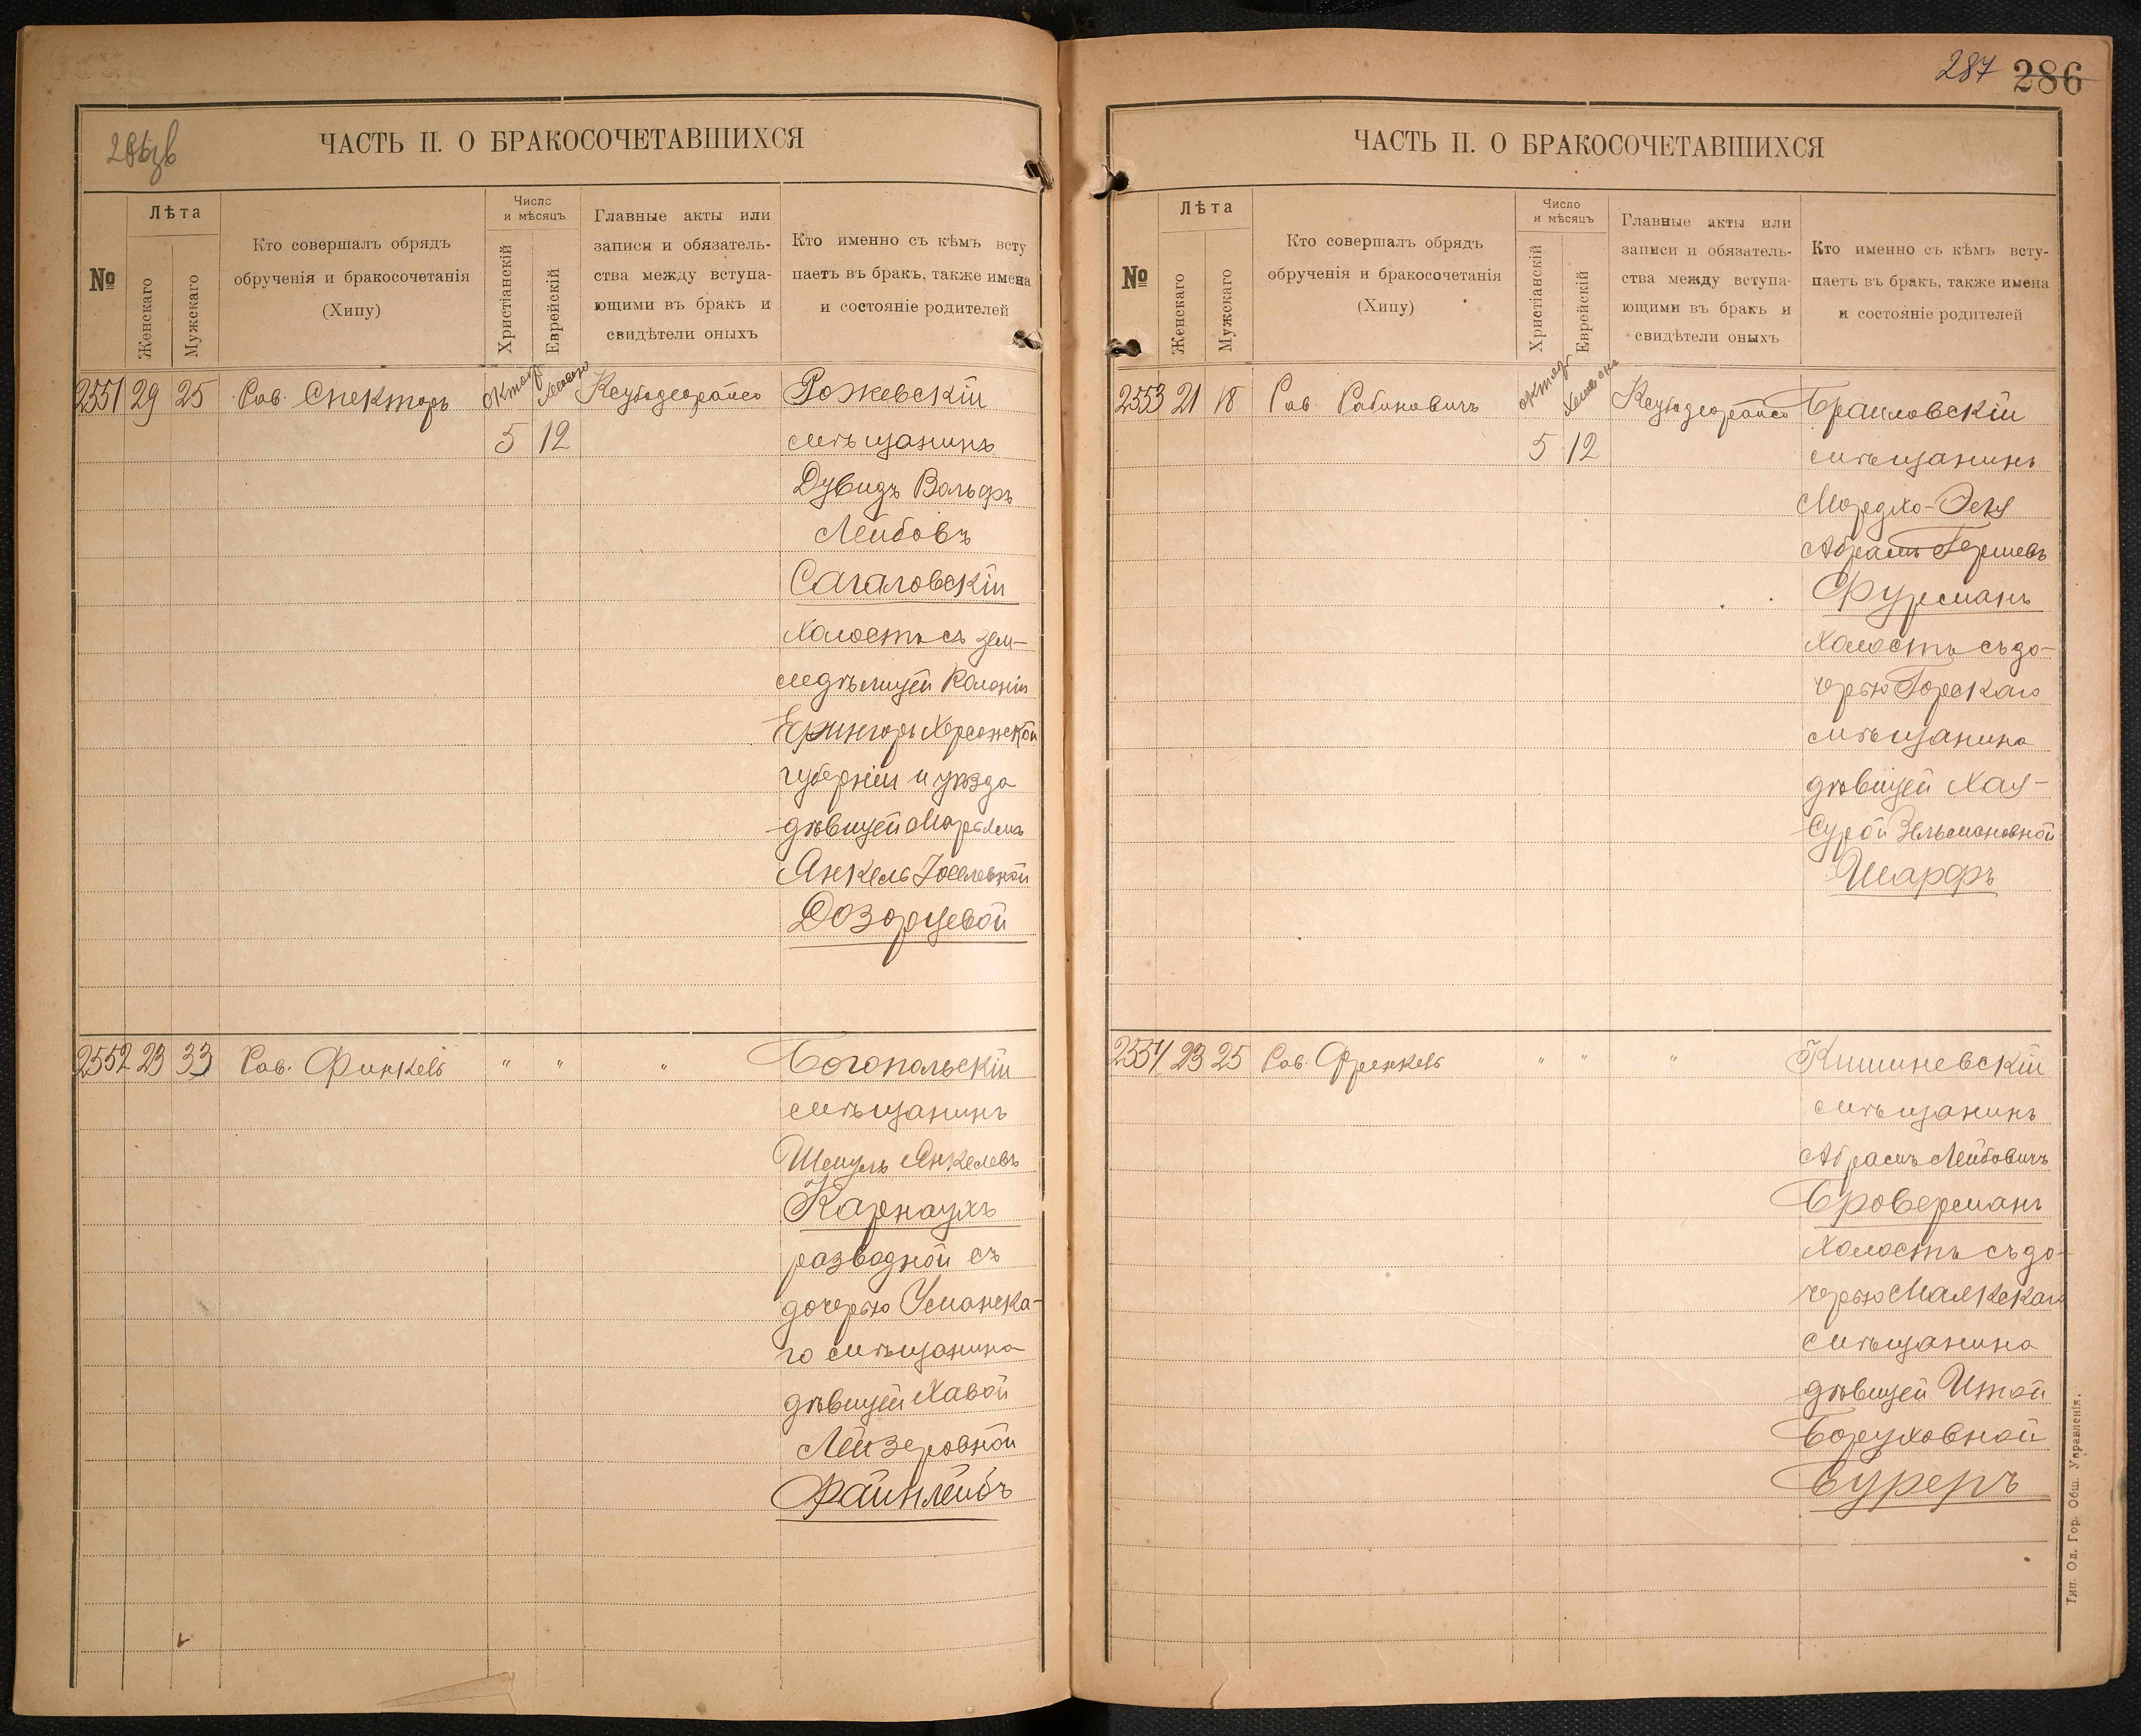 ЧАСТЬ II. О БРАКОСОЧЕТАВШИХСЯ
№
Лѣта
Женскаго
Мужскаго
Кто совершалъ обрядъ
обрученія и бракосочетанія
(Хипу)
Число
и мѣсяцъ
Христіанскій
Еврейскій
Главные акты или
записи и обязатель-
ства между вступа-
ющими въ бракъ и
свидѣтели оныхъ
Кто именно съ кѣмъ всту
паетъ въ бракъ, также имена
и состояніе родителей
2551 29 25 Рав. Спекторъ Рожевскій
5 12 мѣщанинъ
Дувидъ Вольфъ
Лейбовъ
Сагаловскій
Холостъ съ зем-
ледѣлицей Колоніи
Херсонской
губерніи и уѣзда
дѣвицей Марьямъ
Янкель Іоселевной
Дозорцевой
2552 23 33 Рав. Финкель " " " Богопольскій
мѣщанинъ
Шмуль Янкелевъ
Карнаухъ
разводной съ
дочерью Уманска-
го мѣщанина
дѣвицей Хавой
Лейзеровной
Файнлейбъ
287 286
ЧАСТЬ II. О БРАКОСОЧЕТАВШИХСЯ
№
Лѣта
Женскаго
Мужскаго
Кто совершалъ обрядъ
обрученія и бракосочетанія
(Хипу)
Число
и мѣсяцъ
Христіанскій
Еврейскій
Главные акты или
записи и обязатель-
ства между вступа-
ющими въ бракъ и
свидѣтели оныхъ
Кто именно съ кѣмъ всту-
паетъ въ бракъ, также имена
и состояніе родителей
2553 21 18 Рав. Рабиновичъ Браиловскій
5 12 мѣщанинъ
Мордко-
Абрамъ Гершевъ
Фурманъ
Холостъ съ до-
черью Горскаго
мѣщанина
дѣвицей Хая-
Сурой Зельмановной
Шарфъ
2554 23 25 Рав. Френкель " " " Кишиневскій
мѣщанинъ
Абрамъ Лейбовичъ
Броверманъ
Холостъ съ до-
черью
мѣщанина
дѣвицей Итой
Боруховной
Буреръ
Тип. Од. Гор. Общ. Управленія.